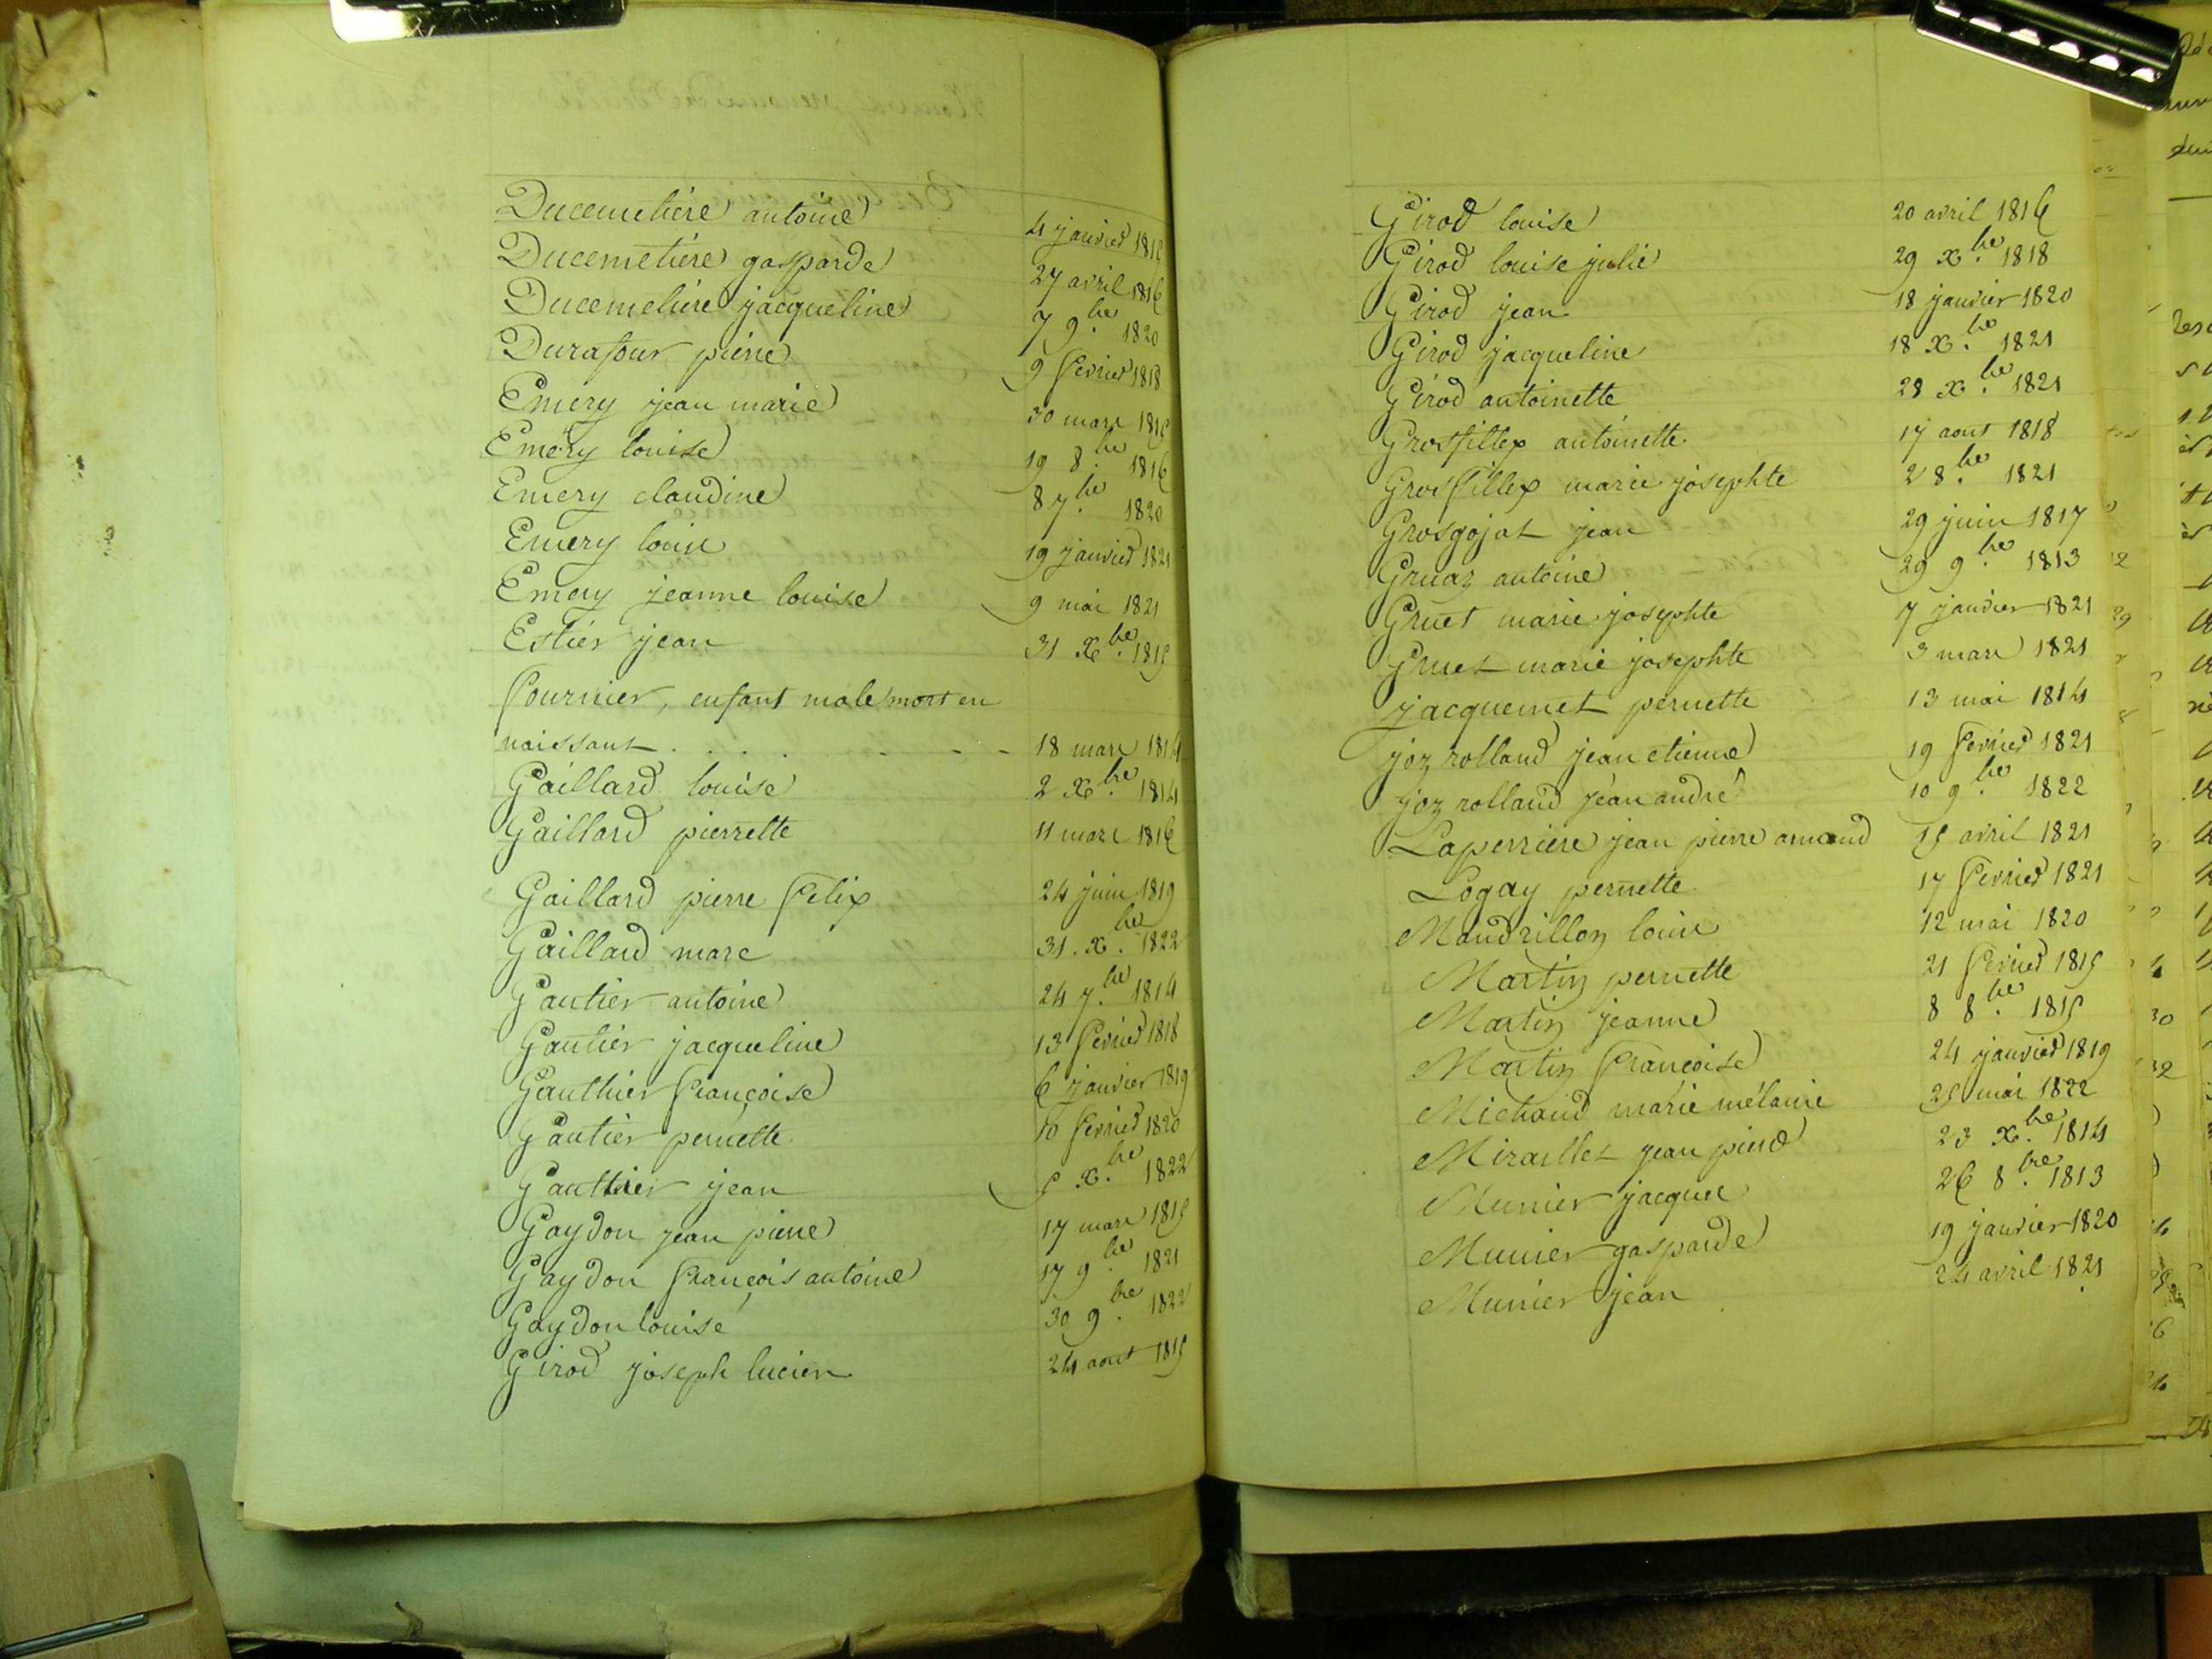 Ducemetière antoine 4 janvier 1816
Ducemetière gasparde 27 avril 1816
Ducemetière jacqueline 7 9.bre 1820
Durafour pierre 9 fevrier 1818
Emery jean marie 30 mars 1815
Emery louise 19 8.bre 1816
Emery claudine 8 7.bre 1820
Emery louis 19 janvier 1821
Emery jeanne louise 9 mai 1821
Estier jean 31 X.bre 1815
fournier, enfant male mort en
naissant . . . . . - - - 18 mars 1814
Gaillard louise 2 X.bre 1814
Gaillard pierrette 11 mars 1816
Gaillard pierre felix 24 juin 1819
Gaillard marc 31. X.bre 1822
Gautier antoine 24 7.bre 1814
Gautier jacqueline 13 fevrier 1818
Gauthier françoise 6 janvier 1819
Gautier pernette 10 fevrier 1820
Gauthier jean 5 X.bre 1822
Gaydon jean pierre 17 mars 1815
Gaydon françois antoine 17 9.bre 1821
Gaydon louise 30 9.bre 1822
Girod joseph lucien 24 aout 1815
Girod louise 20 avril 1816
Girod louise julie 29 X.bre 1818
Girod jean 18 janvier 1820
Girod jacqueline 18 X.bre 1821
Girod antoinette 28 X.bre 1821
Grosfillex antoinette 17 aout 1818
Grosfillex marie josephte 2 8.bre 1821
Grosgojat jean 29 juin 1817
Gruaz antoine 29 9.bre 1813
Gruet marie josephte 7 janvier 1821
Gruet marie josephte 3 mars 1821
jacquemet pernette 13 mai 1814
joz rolland jean etienne 19 fevrier 1821
joz rolland jean andré 10 9.bre 1822
Laperriere jean pierre armand 15 avril 1821
Logay pernette 17 fevrier 1821
Mandrillon louis 12 mai 1820
Martin pernette 21 fevrier 1815
Martin jeanne 8 8.bre 1815
Martin françoise 24 janvier 1819
Michaud marie mélanie 25 mai 1822
Miraillet jean pierre 23 X.bre 1814
Munier jacques 26 8.bre 1813
Munier gasparde 19 janvier 1820
Munier jean 24 avril 1821